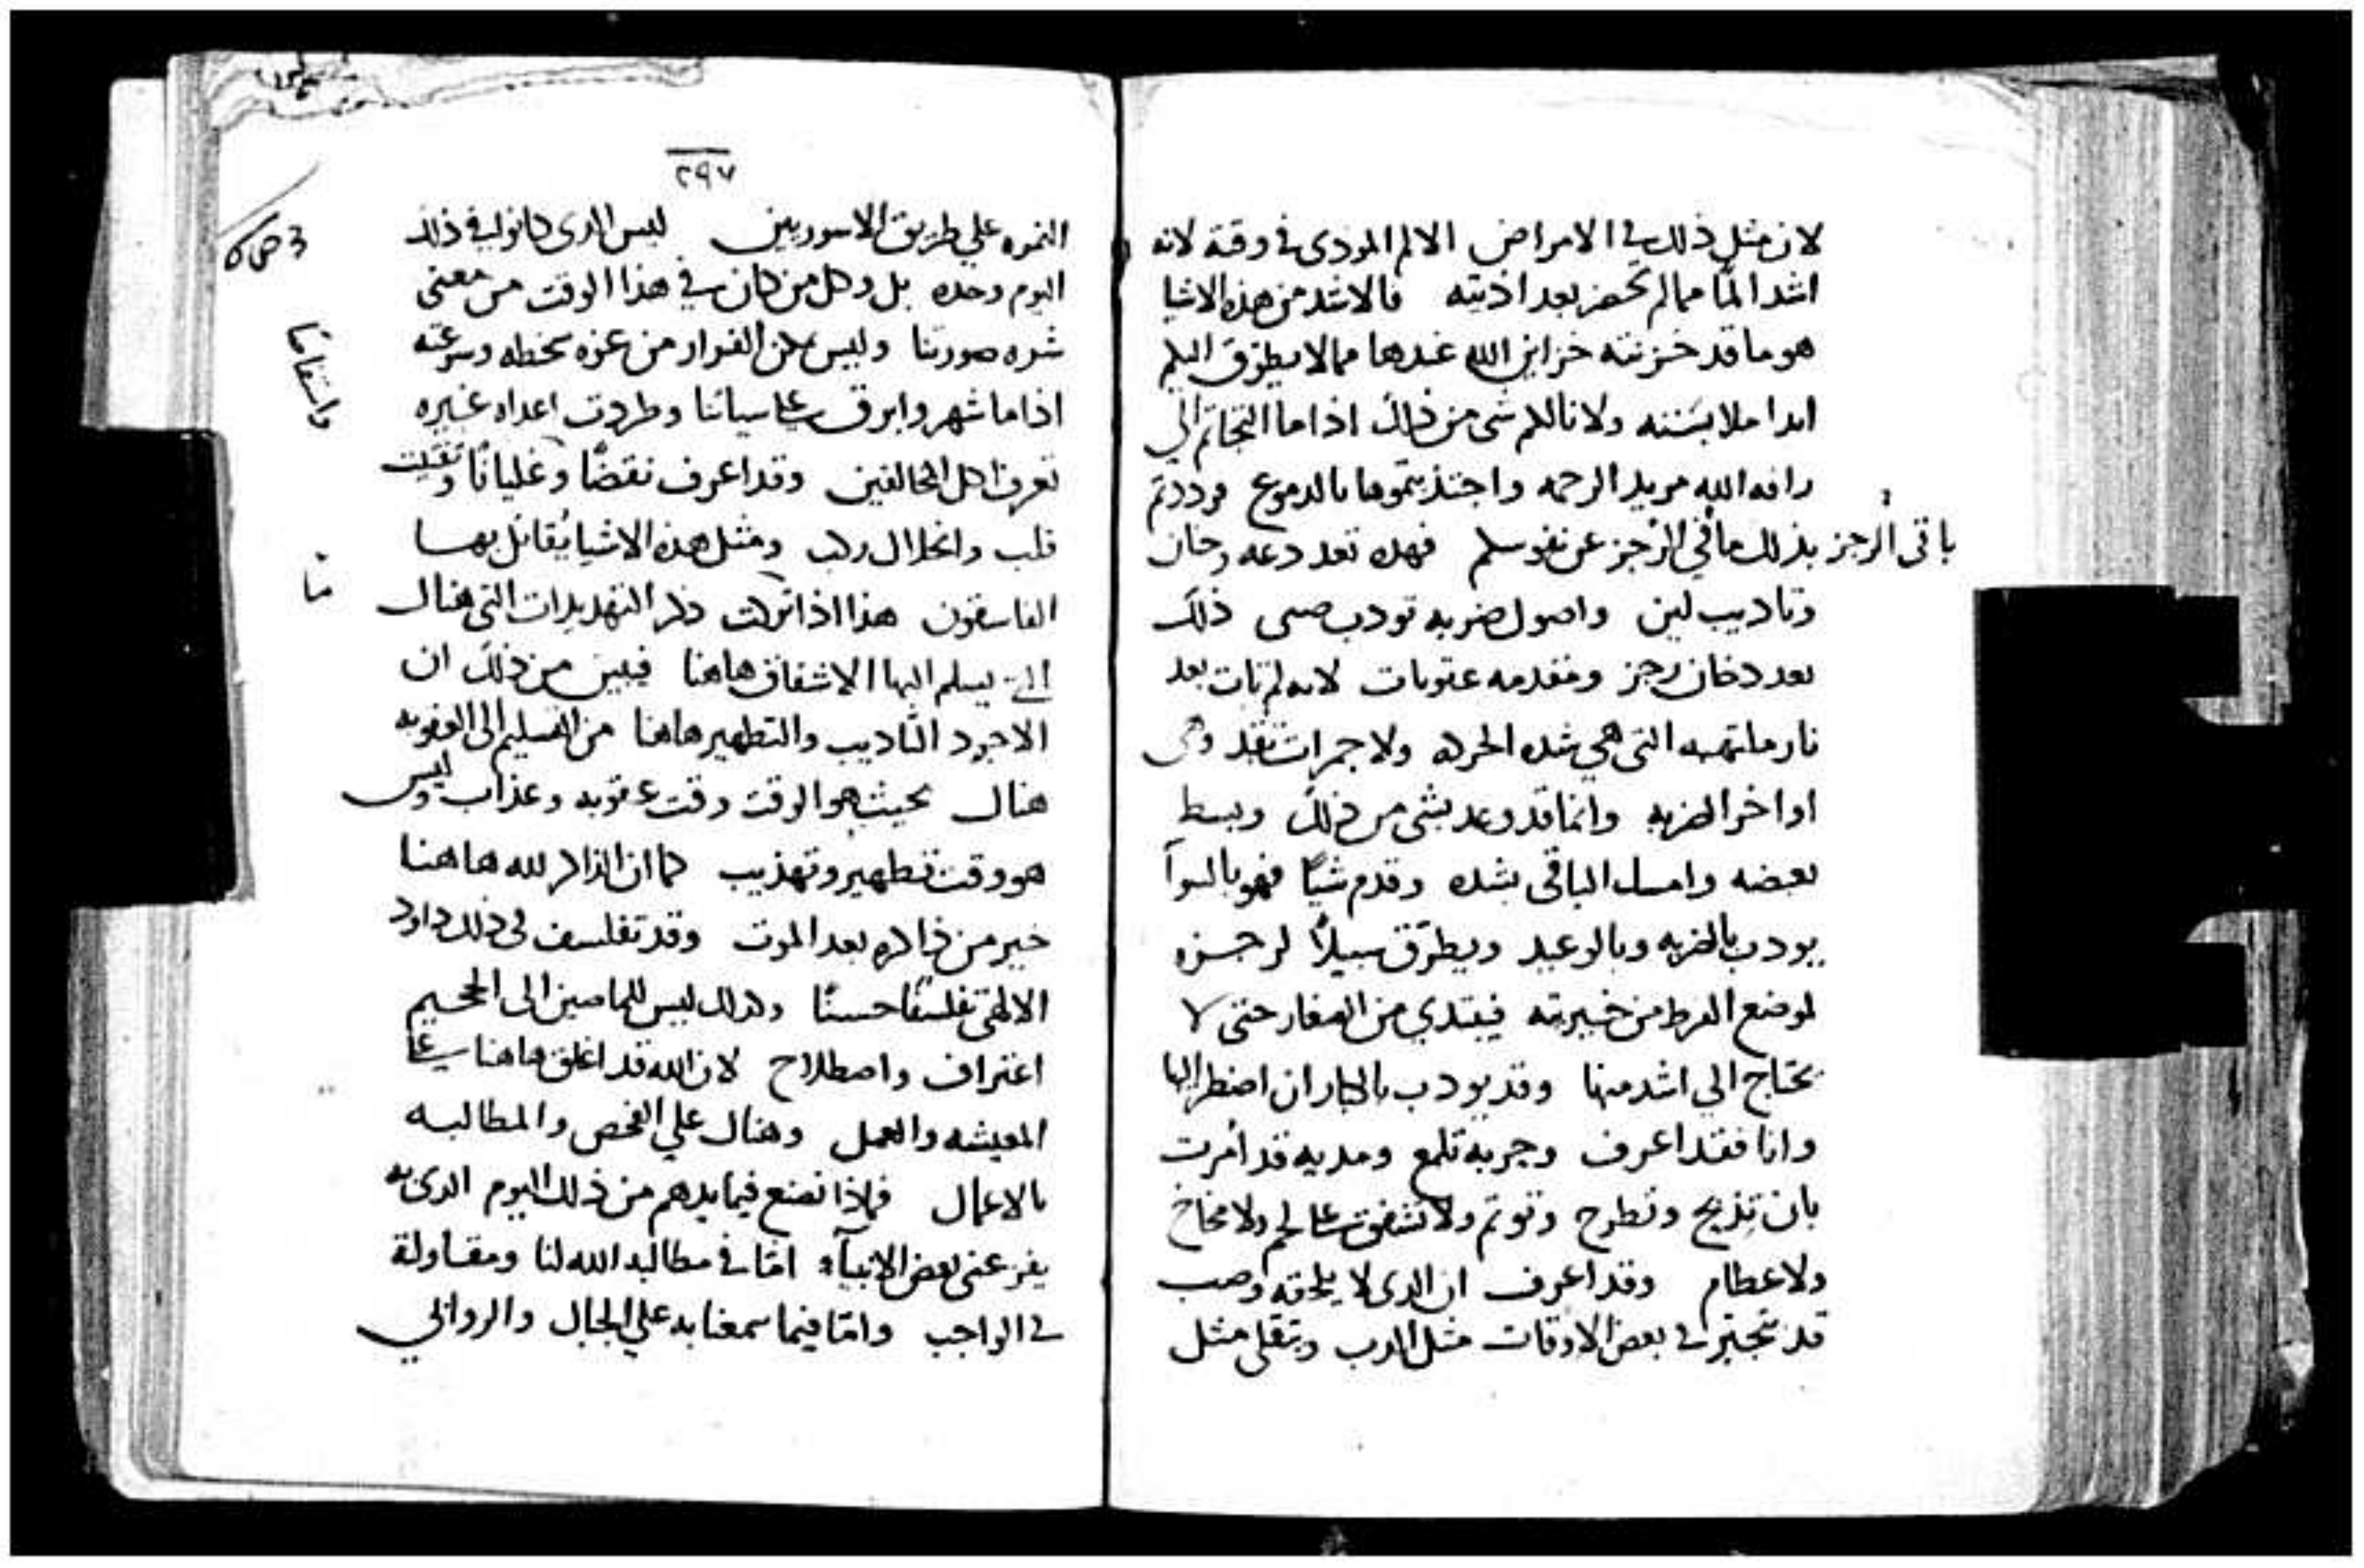 لان مثل ذلك في الامراض الالم المودى في وقته لانه
اشد المًا مما لم يحضر بعد اذيته فالاشد من هذه الاشيا
هو ما قد خزنته خزاين الله عندها مما لا يطرق اليكم
ابدا ملابسته ولا نالكم شى من ذلك اذا ما التجاتم الي
رافه الله مريد الرحمه واجتذبتموها بالدموع ورددتم
بذلك ما في الرجز عن نفوسكم فهده تعد دعه وحنان
باقى الرجز
وتاديب لين واصول ضربه تودب صبى ذلك
بعد دخان رجز ومقدمه عقوبات لانه لم يات بعد
نار ملتهبه التى هي شده الحركه ولا جمرات تتقد وهى
اواخر الضربه وانما قد وعد بشى من ذلك وبسط
بعضه وامسك الباقى بشده وقدم شيًا فهو بالسوآ
يودب بالضربه وبالوعيد ويطرّق سبيلاً لرجزه
لموضع الفرط من خيريته فيبتدي من الصغار حتى لا
يحتاج الي اشد منها وقد يودب بالكبار ان اضطر اليها
وانا فقد اعرف وحربة تلمع ومديه قد اُمرت
بان تذبح وتطرح وتوتم ولا تشفق على لحم ولا مخاخ
ولا عظام وقد اعرف ان الدى لا يلحقه وصب
قد تجبر في بعض الاوقات مثل الدب وتتقلى مثل
٢٩٧
النمره على طريق الاسوريين ليس الدى كانوا في ذلك
اليوم وحده بل وكل من كان في هذا الوقت من معنى
شره صورتنا وليس يمكن الفرار من عزه سخطه وسرعته
اذا ما شهر وابرق على سياتنا وطردت اعداه غيره
تعرف اكل المخالفين وقد اعرف نفضًا وغليانًا وتفتيت
قلب وانحلال ركب ومثل هذه الاشيا يُقاتل بها
الفاسقون هذا اذا تركت ذكر التهديدات التى هناك
التى يسلم اليها الاشفاق هاهنا فيبين من ذلك ان
الاجود التاديب والتطهير هاهنا من التسليم الى العقوبه
هناك بحيث هو الوقت وقت عقوبه وعذاب وليس
هو وقت تطهير وتهذيب كما ان الذاكر لله هاهنا
خير من ذاكره بعد الموت وقد تفلسف في ذلك داود
الالهى تفلسفًا حسنًا وكدلك ليس للماضين الى الجحيم
اعتراف واصطلاح لان الله قد اغلق هاهنا على
المعيشه والعمل وهناك علي الفحص والمطالبه
بالاعمال فماذا نصنع فيما يدهم من ذلك اليوم الدى به
يفزعنى بعض الانبيآء امّا في مطالبه الله لنا ومقاولة
في الواجب وامّا فيما سمعنا به علي الجبال والروابي